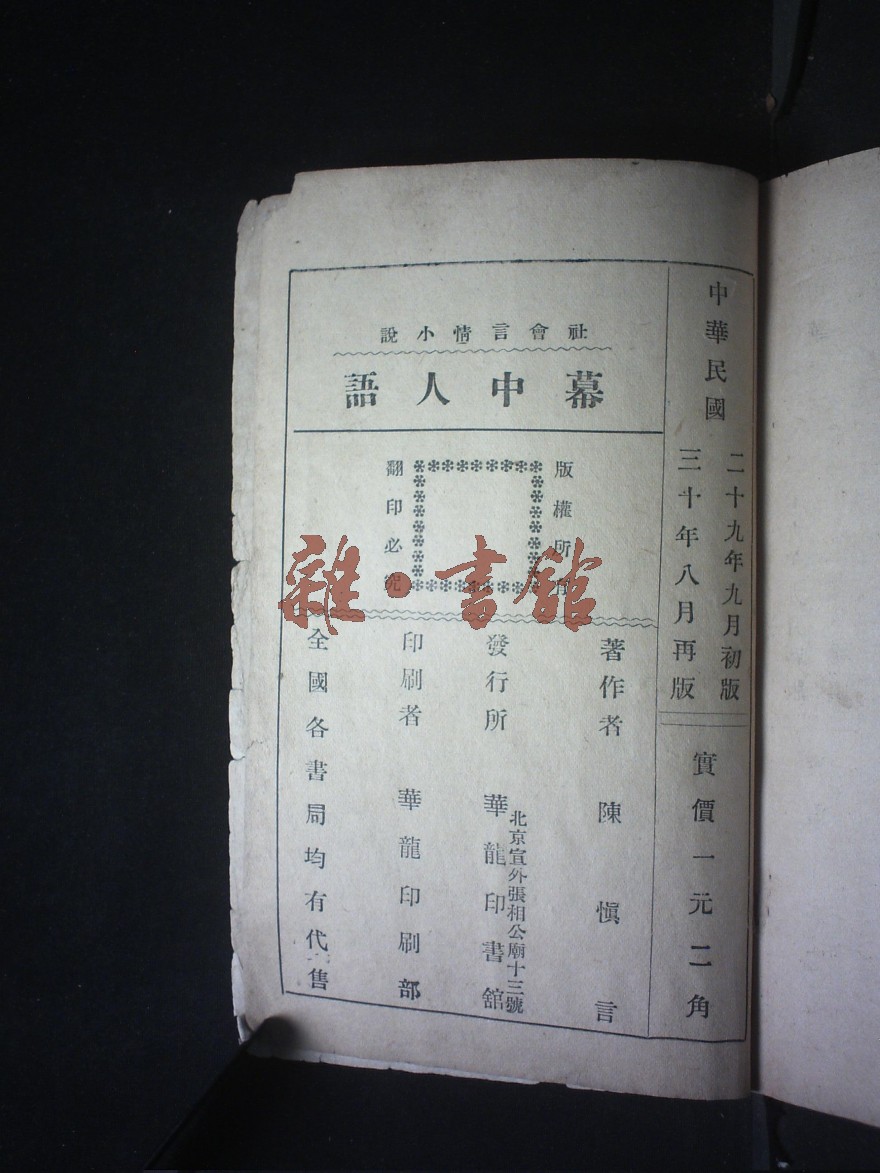 中華民國
二十九年九月初版
三十年八月再版
實價一元二角
社會言情小說
幕中人語
版權所有
翻印必究
著作者 陳慎言
發行所 北京宣外張相公廟十三號
華龍印書舘
印刷者 華龍印刷部
全國各書局均有代售
雜·書館